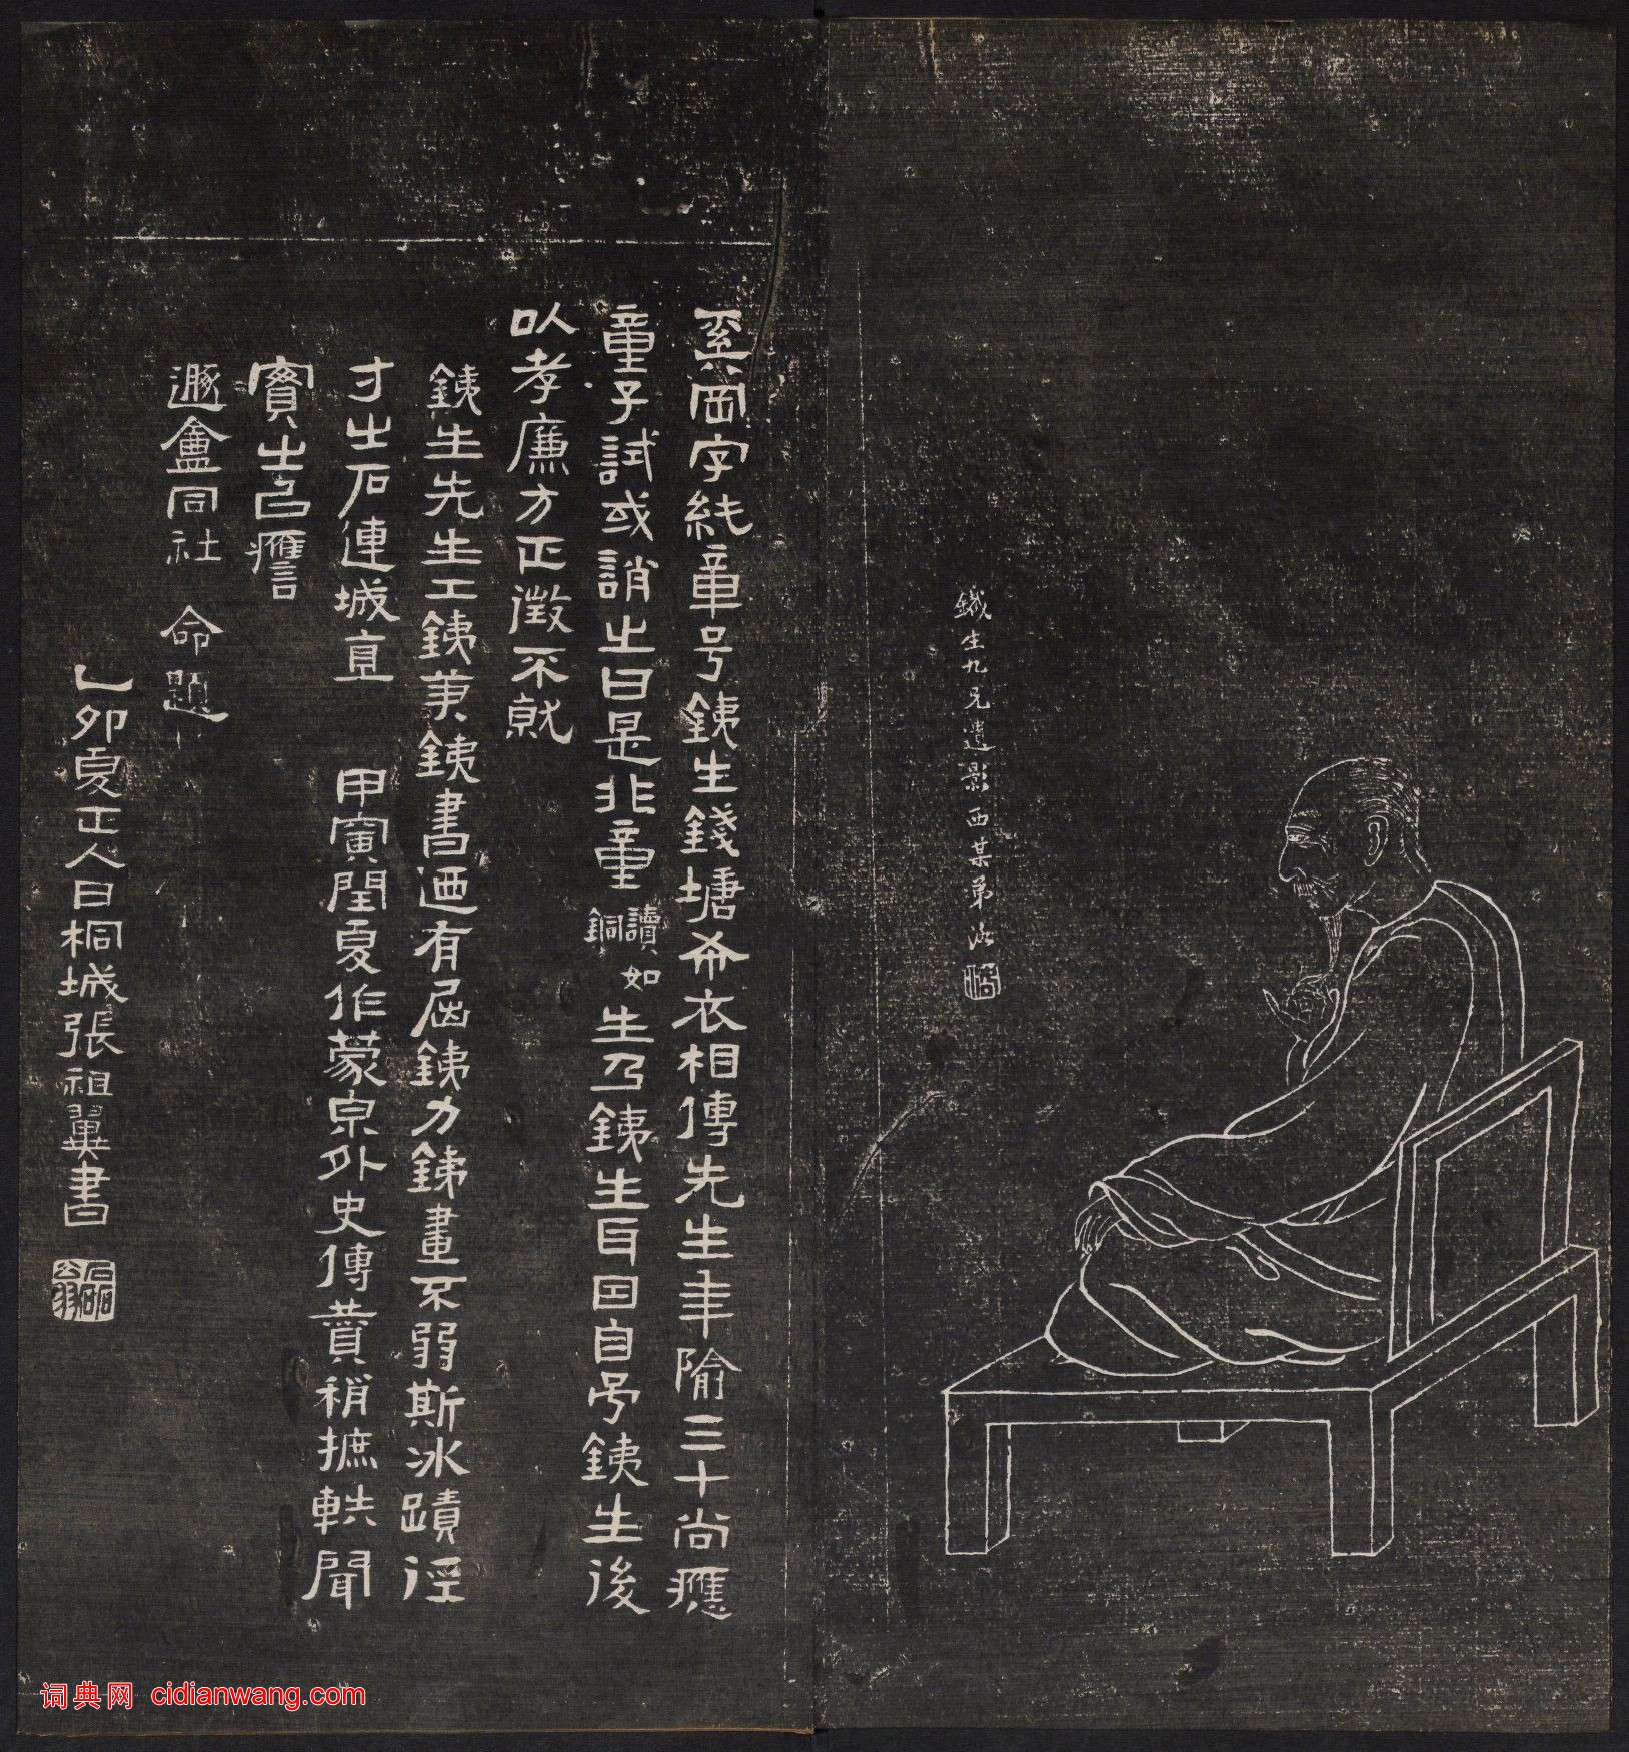 鐵生九兄遺影西某弟冷
奚岡字純章号銕生錢塘布衣相傳先生年隃三十尚應
童子試或誚之曰是非童讀如銅生乃銕生耳因自号銕生後
以孝廉方正徵不就
銕生先生工銕筆銕書迺有屈銕力銕畫不弱斯冰蹟徑
寸出石連城直 甲寅閏夏作蒙泉外史傳贊稍摭軼聞
實之已癮言
遯盦同社 命題
乙卯夏正人日桐城張祖翼書
词典网 cidianwang.com